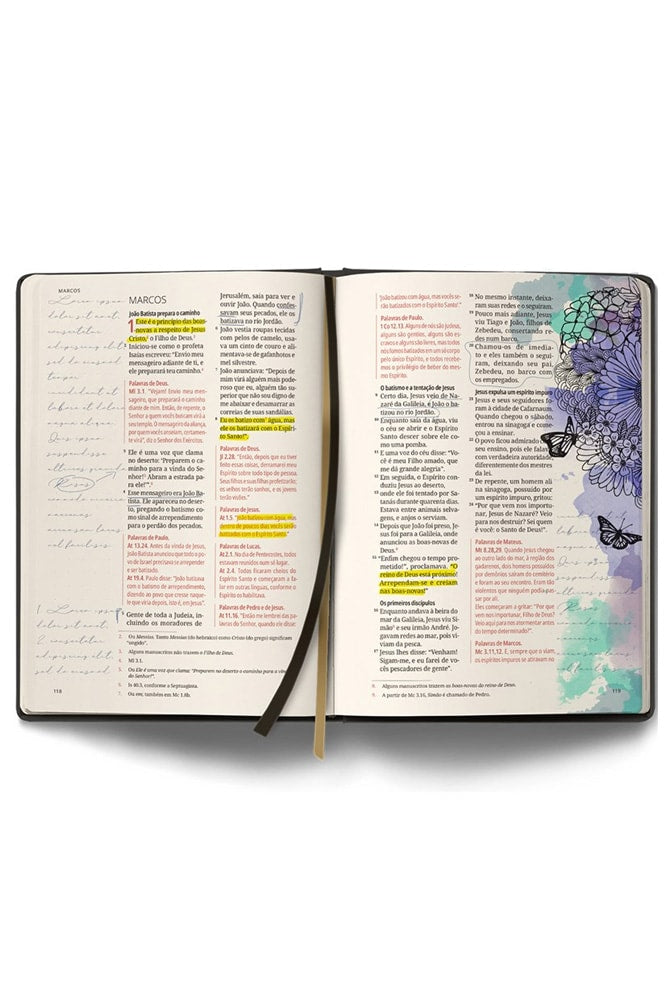 MARCOS
Lorem ipsum
dolor sit amet,
consectetur
adipiscing elit
sed do eiusmod
tempor
incididunt ut
labore et dolore
magna aliqua.
Quis ipsum
suspendisse
ultrices gravida
Risus
commodo viverra
maecenas
accumsan lacus
vel facilisis
1 Lorem ipsum
dolor sit amet,
2 consectetur
adipiscing elit
sed do eiusmod
MARCOS
João Batista prepara o caminho
1 Este é o princípio das boas-
novas a respeito de Jesus
Cristo, o Filho de Deus.
Iniciou-se como o profeta
Isaías escreveu: “Envio meu
mensageiro adiante de ti, e
ele preparará teu caminho.
Palavras de Deus.
Ml 3.1. “Vejam! Envio meu men-
sageiro, que preparará o caminho
diante de mim. Então, de repente, o
Senhor a quem vocês buscam virá a
seu templo. O mensageiro da aliança,
por quem vocês anseiam, certamen-
te virá”, diz o Senhor dos Exércitos.
3 Ele é uma voz que clama
no deserto: ‘Preparem o ca-
minho para a vinda do Se-
nhor! Abram a estrada pa-
ra ele!’”.
4 Esse mensageiro era João Ba-
tista. Ele apareceu no deser-
to, pregando o batismo co-
mo sinal de arrependimento
para o perdão dos pecados.
Palavras de Paulo.
At 13.24. Antes da vinda de Jesus,
João Batista anunciou que todo o po-
vo de Israel precisava se arrepender
e ser batizado.
At 19.4. Paulo disse: “João batizava
com o batismo de arrependimento,
dizendo ao povo que cresse naque-
le que viria depois, isto é, em Jesus”.
5 Gente de toda a Judeia, in-
cluindo os moradores de
Jerusalém, saía para ver e
ouvir João. Quando confes-
savam seus pecados, ele os
batizava no rio Jordão.
6 João vestia roupas tecidas
com pelos de camelo, usa-
va um cinto de couro e ali-
mentava-se de gafanhotos e
mel silvestre.
7 João anunciava: “Depois de
mim virá alguém mais pode-
roso que eu, alguém tão su-
perior que não sou digno de
me abaixar e desamarrar as
correias de suas sandálias.
8 Eu os batizo com água, mas
ele os batizará com o Espíri-
to Santo!”.
Palavras de Deus.
Jl 2.28. “Então, depois que eu tiver
feito essas coisas, derramarei meu
Espírito sobre todo tipo de pessoa.
Seus filhos e suas filhas profetizarão;
os velhos terão sonhos, e os jovens
terão visões.”
Palavras de Jesus.
At 1.5. “João batizou com água, mas
dentro de poucos dias vocês serão
batizados com o Espírito Santo”.
Palavras de Lucas.
At 2.1. No dia de Pentecostes, todos
estavam reunidos num só lugar.
At 2.4. Todos ficaram cheios do
Espírito Santo e começaram a fa-
lar em outras línguas, conforme o
Espírito os habilitava.
Palavras de Pedro e de Jesus.
At 11.16. “Então me lembrei das pa-
lavras do Senhor, quando ele disse:
2. Ou Messias. Tanto Messias (do hebraico) como Cristo (do grego) significam
“ungido”.
3. Alguns manuscritos não trazem o Filho de Deus.
4. Ml 3.1.
5. Ou Ele é uma voz que clama: “Preparem no deserto o caminho para a vinda
do Senhor!”.
6. Is 40.3, conforme a Septuaginta.
7. Ou em; também em Mc 1.8b.
118
‘João batizou com água, mas vocês se-
rão batizados com o Espírito Santo’.”
Palavras de Paulo.
1 Co 12.13. Alguns de nós são judeus,
alguns são gentios, alguns são es-
cravos e alguns são livres, mas todos
nós fomos batizados em um só corpo
pelo único Espírito, e todos recebe-
mos o privilégio de beber do mes-
mo Espírito.
O batismo e a tentação de Jesus
9 Certo dia, Jesus veio de Na-
zaré da Galileia, e João o ba-
tizou no rio Jordão.
10 Enquanto saía da água, viu
o céu se abrir e o Espírito
Santo descer sobre ele co-
mo uma pomba.
11 E uma voz do céu disse: “Vo-
cê é meu Filho amado, que
me dá grande alegria”.
12 Em seguida, o Espírito con-
duziu Jesus ao deserto,
13 onde ele foi tentado por Sa-
tanás durante quarenta dias.
Estava entre animais selva-
gens, e anjos o serviam.
14 Depois que João foi preso, Je-
sus foi para a Galileia, onde
anunciou as boas-novas de
Deus.
15 “Enfim chegou o tempo pro-
metido!”, proclamava. “O
reino de Deus está próximo!
Arrependam-se e creiam
nas boas-novas!”
Os primeiros discípulos
16 Enquanto andava à beira do
mar da Galileia, Jesus viu Si-
mão e seu irmão André. Jo-
gavam redes ao mar, pois vi-
viam da pesca.
17 Jesus lhes disse: “Venham!
Sigam-me, e eu farei de vo-
cês pescadores de gente”.
18 No mesmo instante, deixa-
ram suas redes e o seguiram.
19 Pouco mais adiante, Jesus
viu Tiago e João, filhos de
Zebedeu, consertando re-
des num barco.
20 Chamou-os de imedia-
to e eles também o segui-
ram, deixando seu pai,
Zebedeu, no barco com
os empregados.
Jesus expulsa um espírito impuro
21 Jesus e seus seguidores fo-
ram à cidade de Cafarnaum.
Quando chegou o sábado,
entrou na sinagoga e come-
çou a ensinar.
22 O povo ficou admirado com
seu ensino, pois ele falava
com verdadeira autoridade,
diferentemente dos mestres
da lei.
23 De repente, um homem ali
na sinagoga, possuído por
um espírito impuro, gritou:
24 “Por que vem nos importu-
nar, Jesus de Nazaré? Veio
para nos destruir? Sei quem
é você: o Santo de Deus!”.
Palavras de Mateus.
Mt 8.28,29. Quando Jesus chegou
ao outro lado do mar, à região dos
gadarenos, dois homens possuídos
por demônios saíram do cemitério
e foram ao seu encontro. Eram tão
violentos que ninguém podia pas-
sar por ali.
Eles começaram a gritar: “Por que
vem nos importunar, Filho de Deus?
Veio aqui para nos atormentar antes
do tempo determinado?”.
Palavras de Marcos.
Mc 3.11,12. E, sempre que o viam,
os espíritos impuros se atiravam no
8. Alguns manuscritos trazem as boas-novas do reino de Deus.
9. A partir de Mc 3.16, Simão é chamado de Pedro.
119